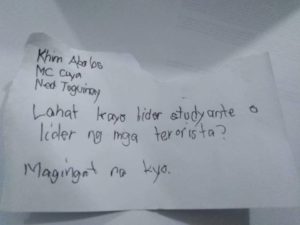 Khim Abalos
MC Cuya
Ned Tuguinay
Lahat kayo lider studyante o
lider ng mga terorista?
Magingat na kyo.